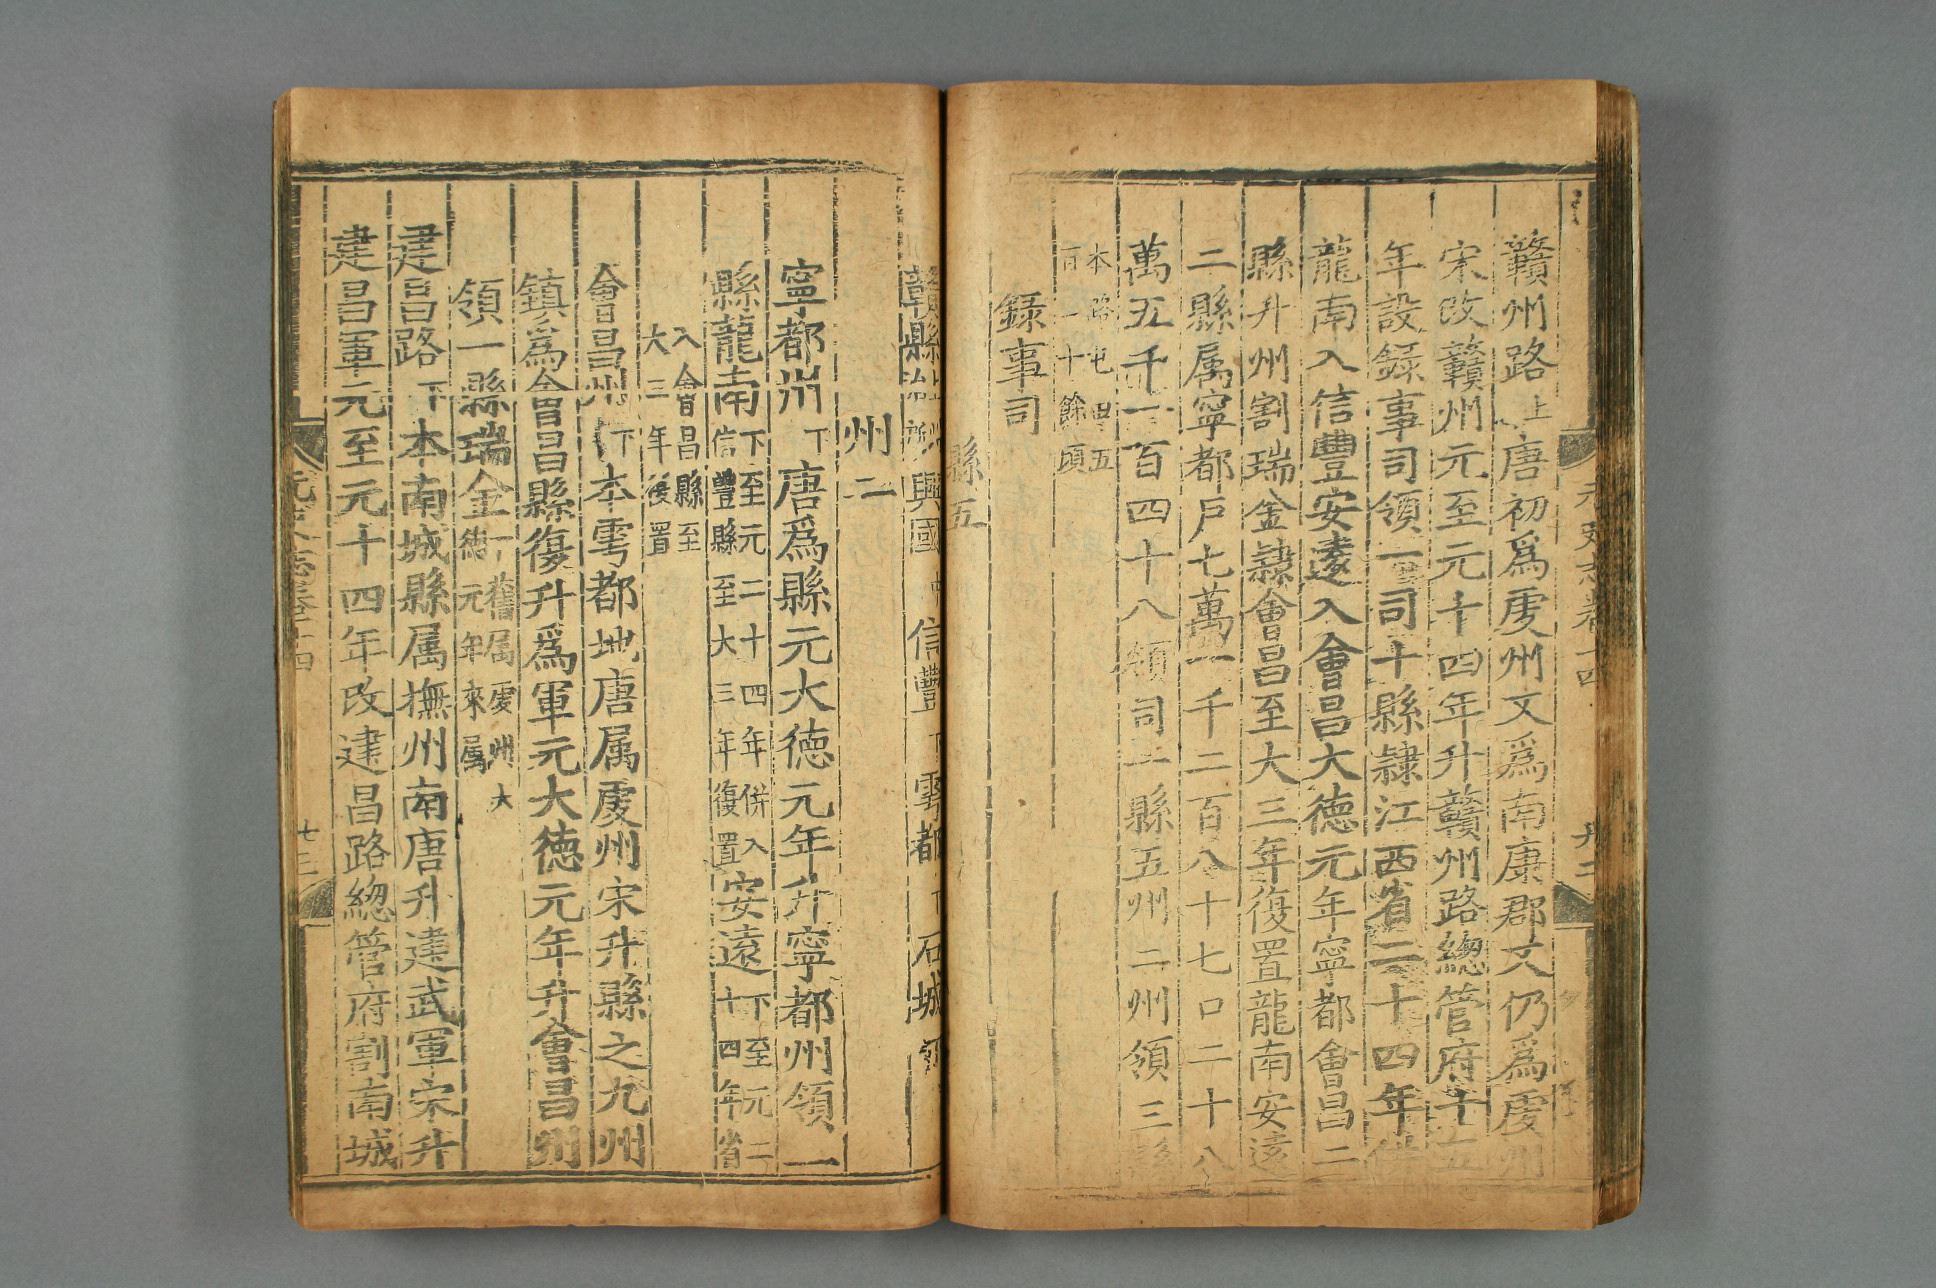 贛州路上唐初爲虔州又爲南康郡又仍爲虔州
宋改贛州元至元十四年升贛州路總管府十五
年設録事司領一司十縣隷江西省二十四年併
龍南入信豐安遠入會昌大徳元年寧都會昌二
縣升州割瑞金隷會昌至大三年復置龍南安遠
二縣属寧都戸七萬一千二百八十七口二十八
萬五千一百四十八領司一縣五州二州領三縣
本路屯田五
百二十餘頃
録事司
縣五
贛縣
興國中信豐下雩都下石城下
州二
寧都州下唐爲縣元大徳元年升寧都州領一
縣龍南下至元二十四年併入
信豐縣至大三年復置安遠下至元二
十四年省
入會昌縣至
大三年復置
會昌州下本雩都地唐属虔州宋升縣之九州
鎮爲會昌縣復升爲軍元大徳元年升會昌州
領一縣瑞金下舊属虔州大
徳元年來属
建昌路下本南城縣属撫州南唐升建武軍宋升
建昌軍元至元十四年改建昌路總管府割南城